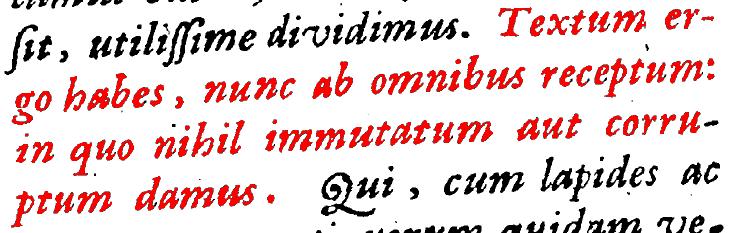 ſit, utiliſſime dividimus. Textum er-
go habes, nunc ab omnibus receptum:
in quo nihil immutatum aut corru-
ptum damus. Qui, cum lapides ac
quidam ve-